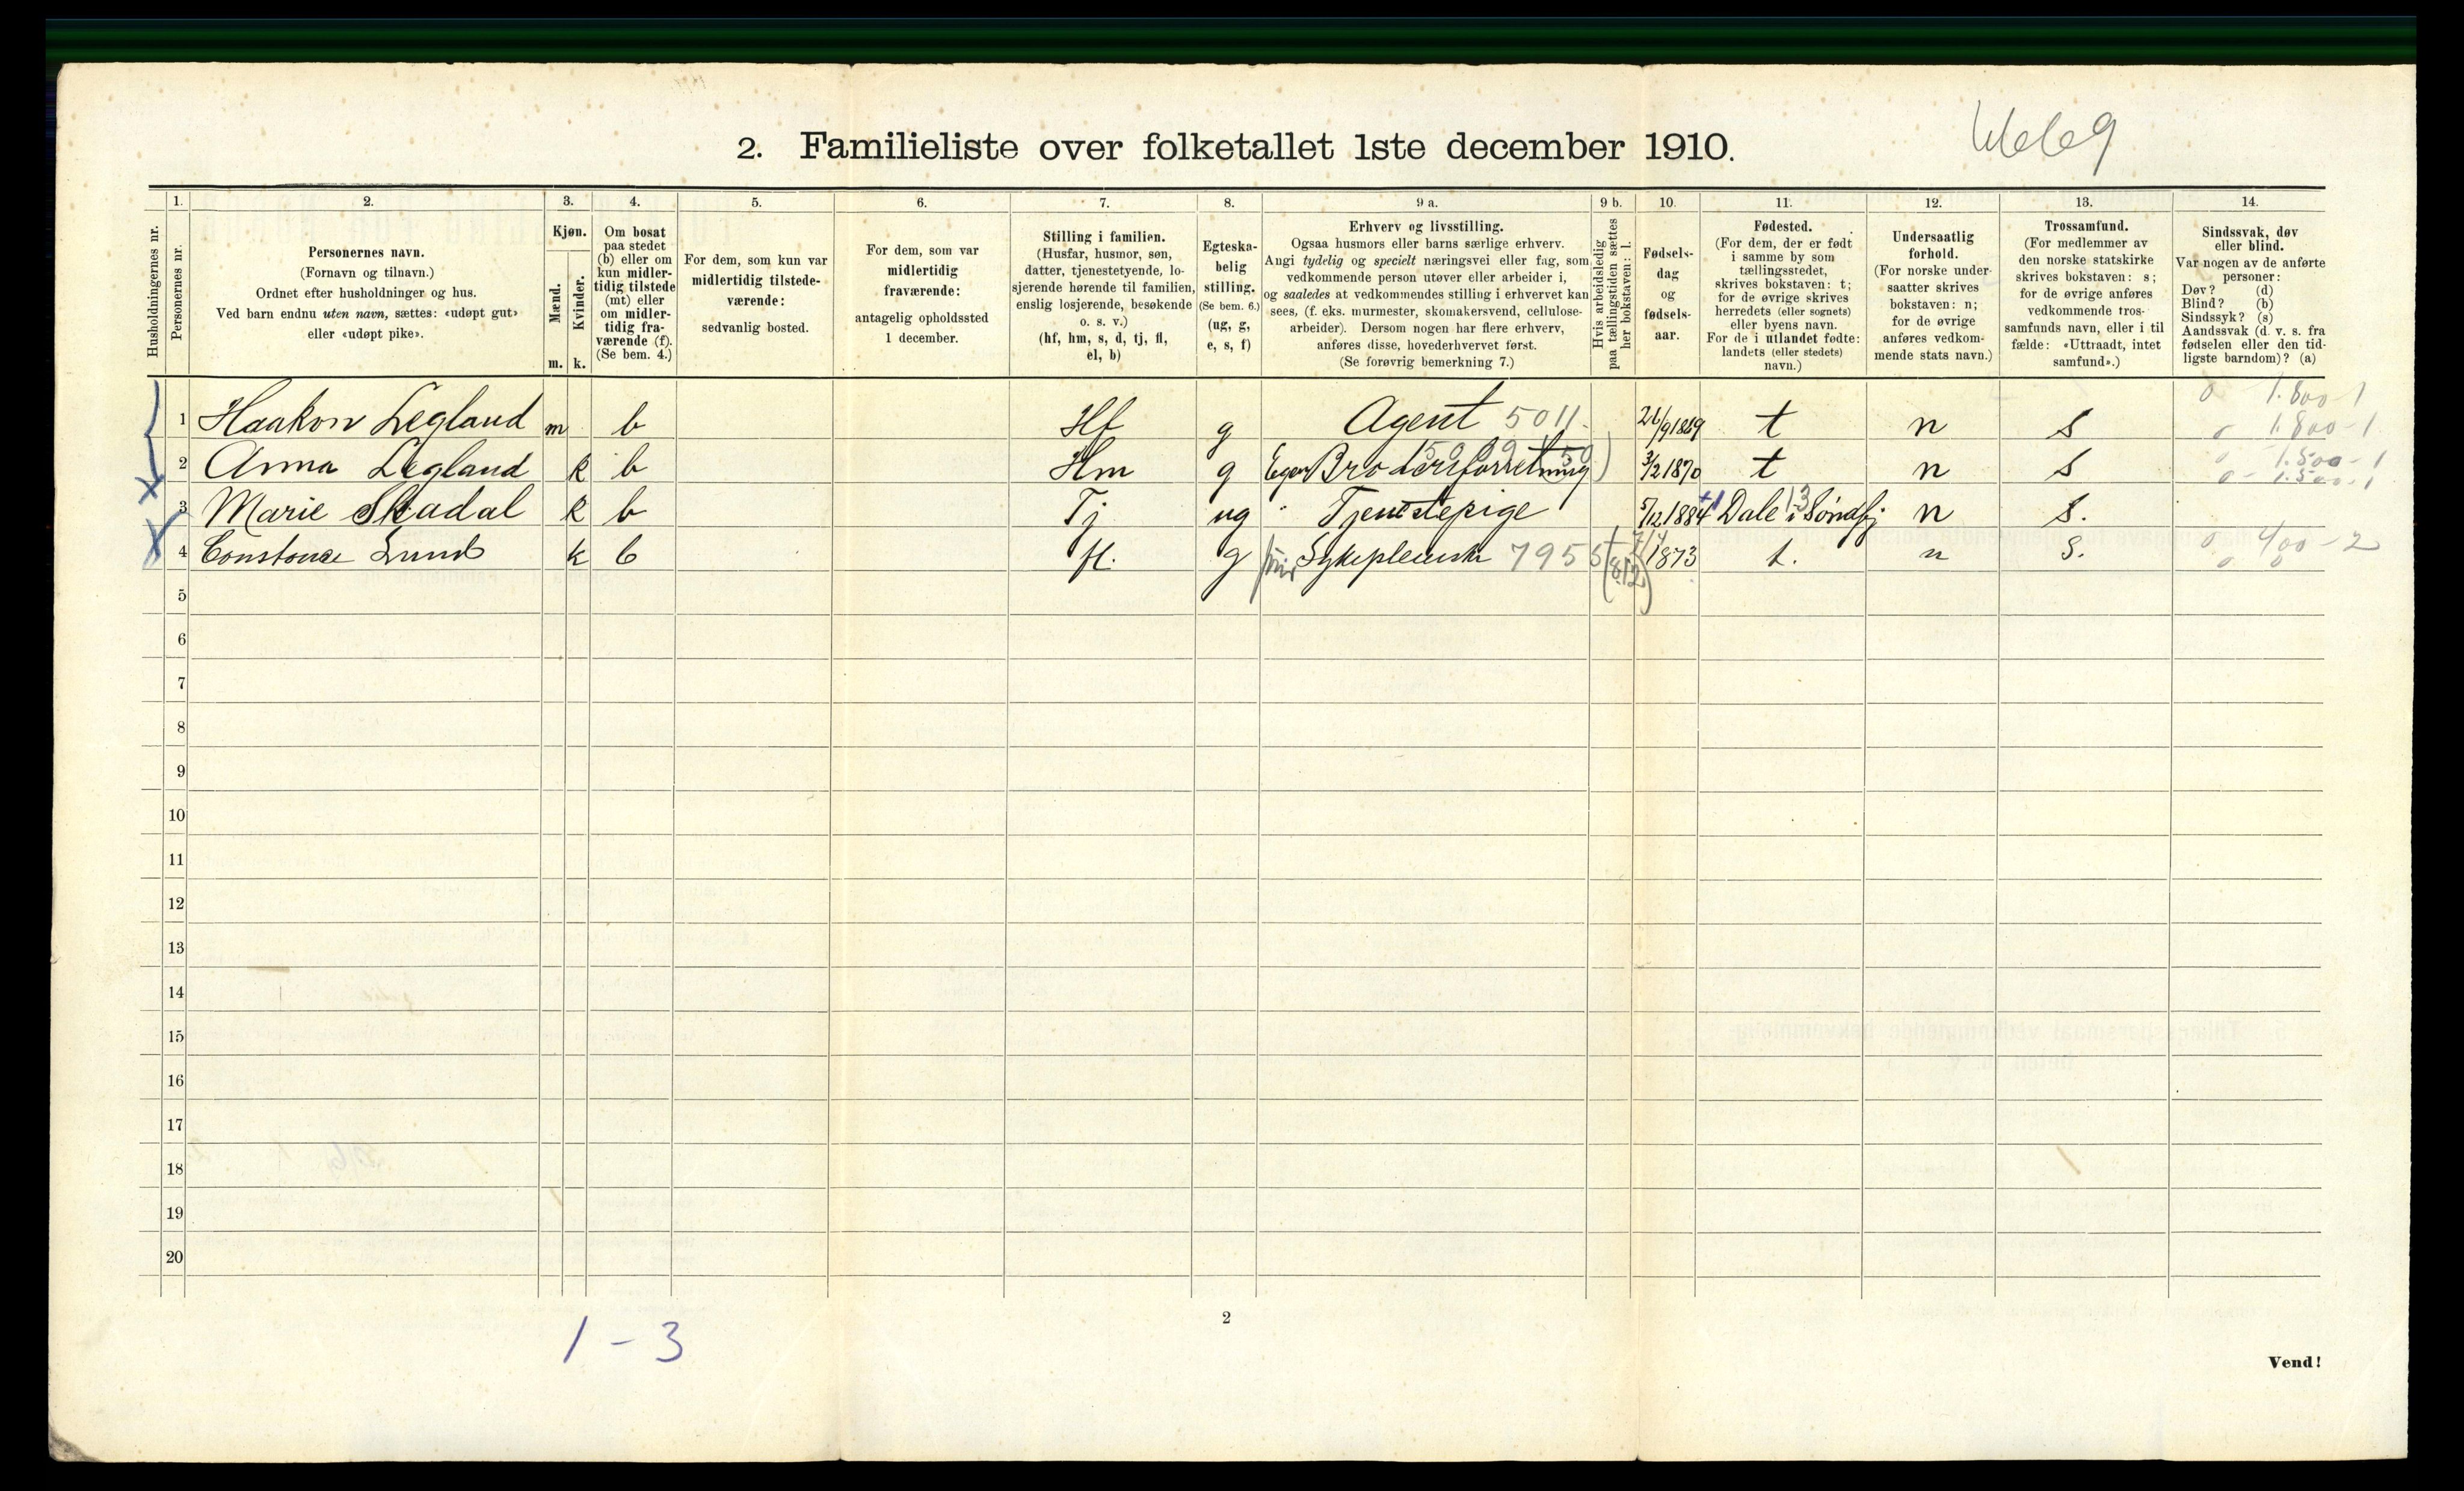 2. Familieliste over folketallet 1ste december 1910.
Husholdningernes nr.
1.
Personernes nr.
2.
Personernes navn.
(Fornavn og tilnavn.)
Ordnet efter husholdninger og hus.
Ved barn endnu uten navn, sættes: «udøpt gut»
eller «udøpt pike».
3.
Kjøn.
Mænd.
Kvinder.
m. k.
4.
Om bosat
paa stedet
(b) eller om
kun midler-
tidig tilstede
(mt) eller
om midler-
tidig fra-
værende (f).
(Se bem. 4.)
5.
For dem, som kun var
midlertidig tilstede-
værende:
sedvanlig bosted.
6.
For dem, som var
midlertidig
fraværende:
antagelig opholdssted
1 december.
7.
Stilling i familien.
(Husfar, husmor, søn,
datter, tjenestetyende, lo-
sjerende hørende til familien,
enslig losjerende, besøkende
o. s. v.)
(hf, hm, s, d, tj, fl,
el, b)
8.
Egteska-
belig
stilling.
(Se bem. 6.)
(ug, g,
e, s, f)
9 a.
Erhverv og livsstilling.
Ogsaa husmors eller barns særlige erhverv.
Angi tydelig og specielt næringsvei eller fag, som
vedkommende person utøver eller arbeider i,
og saaledes at vedkommendes stilling i erhvervet kan
sees, (f. eks. murmester, skomakersvend, cellulose-
arbeider). Dersom nogen har flere erhverv,
anføres disse, hovederhvervet først.
(Se forøvrig bemerkning 7.)
9 b.
Hvis arbeidsledig
paa tællingstiden sættes
her bokstaven: l.
10.
Fødsels-
dag
og
fødsels-
aar.
11.
Fødested.
(For dem, der er født
i samme by som
tællingsstedet,
skrives bokstaven: t;
for de øvrige skrives
herredets (eller sognets)
eller byens navn.
For de i utlandet fødte:
landets (eller stedets)
navn.)
12.
Undersaatlig
forhold.
(For norske under-
saatter skrives
bokstaven: n;
for de øvrige
anføres vedkom-
mende stats navn.)
13.
Trossamfund.
(For medlemmer av
den norske statskirke
skrives bokstaven: s;
for de øvrige anføres
vedkommende tros-
samfunds navn, eller i til
fælde: «Uttraadt, intet
samfund».)
14.
Sindssvak, døv
eller blind.
Var nogen av de anførte
personer:
Døv? (d)
Blind? (b)
Sindssyk? (s)
Aandssvak (d. v. s. fra
fødselen eller den tid-
ligste barndom)? (a)
0 1.800-1
1 Haakon Legland m b Hf g Agent 5011. 26/9 1869 t n s 0 1.800-1
2 Anna Legland k b Hm g Eger Broderiforretning 3/2 1870 t n s 0 1.500-1
0 1.500-1
3 Marie Skadal k b Tj ug Tjenestepige 5/12 1884 Dale i Søndfj n s.
4 Constance Lund k b fl. g Sykepleierske 795 1873 t. n s. 0 400-2
5
6
7
8
9
10
11
12
13
14
15
16
17
18
19
20
2
1-3
Vend!